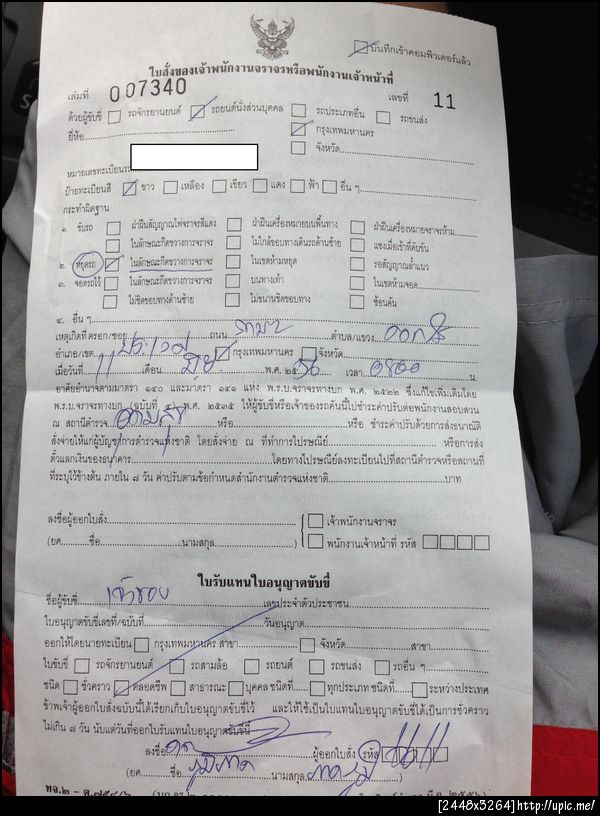 บันทึกเข้าคอมพิวเตอร์แล้ว
ใบสั่งของเจ้าพนักงานจราจรหรือพนักงานเจ้าหน้าที่
เล่มที่ 007340 เลขที่ 11
ด้วยผู้ขับขี่ รถจักรยานยนต์ รถยนต์นั่งส่วนบุคคล รถประเภทอื่น รถขนส่ง
ยี่ห้อ กรุงเทพมหานคร
จังหวัด
หมายเลขทะเบียนรถ
ป้ายทะเบียนสี ขาว เหลือง เขียว แดง ฟ้า อื่น ๆ
กระทำผิดฐาน
๑. ขับรถ ฝ่าฝืนสัญญาณไฟจราจรสีแดง ฝ่าฝืนเครื่องหมายบนพื้นทาง ฝ่าฝืนเครื่องหมายจราจรห้าม
ในลักษณะกีดขวางการจราจร ไม่ใกล้ขอบทางเดินรถด้านซ้าย แซงเมื่อเข้าที่คับขัน
๒. หยุดรถ ในลักษณะกีดขวางการจราจร ในเขตห้ามหยุด รอสัญญาณล้ำแนว
๓. จอดรถไว้ ในลักษณะกีดขวางการจราจร บนทางเท้า ในเขตห้ามจอด
ไม่ชิดขอบทางด้านซ้าย ไม่ขนานชิดขอบทาง ซ้อนคัน
๔. อื่น ๆ
เหตุเกิดที่ ตรอก/ซอย ถนน ตำบล/แขวง
อำเภอ/เขต ประเวศ กรุงเทพมหานคร จังหวัด
เมื่อวันที่ 11 เดือน พ.ศ. ๒๕ 56 เวลา น.
อาศัยอำนาจตามมาตรา ๑๔๐ และมาตรา ๑๔๑ แห่ง พ.ร.บ.จราจรทางบก พ.ศ. ๒๕๒๒ ซึ่งแก้ไขเพิ่มเติมโดย
พ.ร.บ.จราจรทางบก (ฉบับที่ ๔) พ.ศ. ๒๕๓๕ ให้ผู้ขับขี่หรือเจ้าของรถคันนี้ไปชำระค่าปรับต่อพนักงานสอบสวน
ณ สถานีตำรวจ หรือ หรือ ชำระค่าปรับด้วยการส่งธนาณัติ
สั่งจ่ายให้แก่ผู้บัญชาการตำรวจแห่งชาติ โดยสั่งจ่าย ณ ที่ทำการไปรษณีย์ หรือการส่ง
ตั๋วแลกเงินของธนาคาร โดยทางไปรษณีย์ลงทะเบียนไปที่สถานีตำรวจหรือสถานที่
ที่ระบุไว้ข้างต้น ภายใน ๗ วัน ค่าปรับตามข้อกำหนดสำนักงานตำรวจแห่งชาติ บาท
ลงชื่อผู้ออกใบสั่ง เจ้าพนักงานจราจร
(ยศ ชื่อ นามสกุล ) พนักงานเจ้าหน้าที่ รหัส
ใบรับแทนใบอนุญาตขับขี่
ชื่อผู้ขับขี่ เจ้าของ เลขประจำตัวประชาชน
ใบอนุญาตขับขี่เลขที่/ฉบับที่ วันอนุญาต
ออกให้โดยนายทะเบียน กรุงเทพมหานคร สาขา จังหวัด สาขา
ใบขับขี่ รถจักรยานยนต์ รถสามล้อ รถยนต์ รถขนส่ง รถอื่น ๆ
ชนิด ชั่วคราว ตลอดชีพ สาธารณะ บุคคล ชนิดที่ ทุกประเภท ชนิดที่ ระหว่างประเทศ
ข้าพเจ้าผู้ออกใบสั่งฉบับนี้ได้เรียกเก็บใบอนุญาตขับขี่ไว้ และให้ใช้เป็นใบแทนใบอนุญาตขับขี่ได้เป็นการชั่วคราว
ไม่เกิน ๗ วัน นับแต่วันที่ออกใบรับแทนใบอนุญาตขับขี่นี้
ลงชื่อ ผู้ออกใบสั่ง รหัส
(ยศ ชื่อ นามสกุล
[2448x3264]http://upic.me/